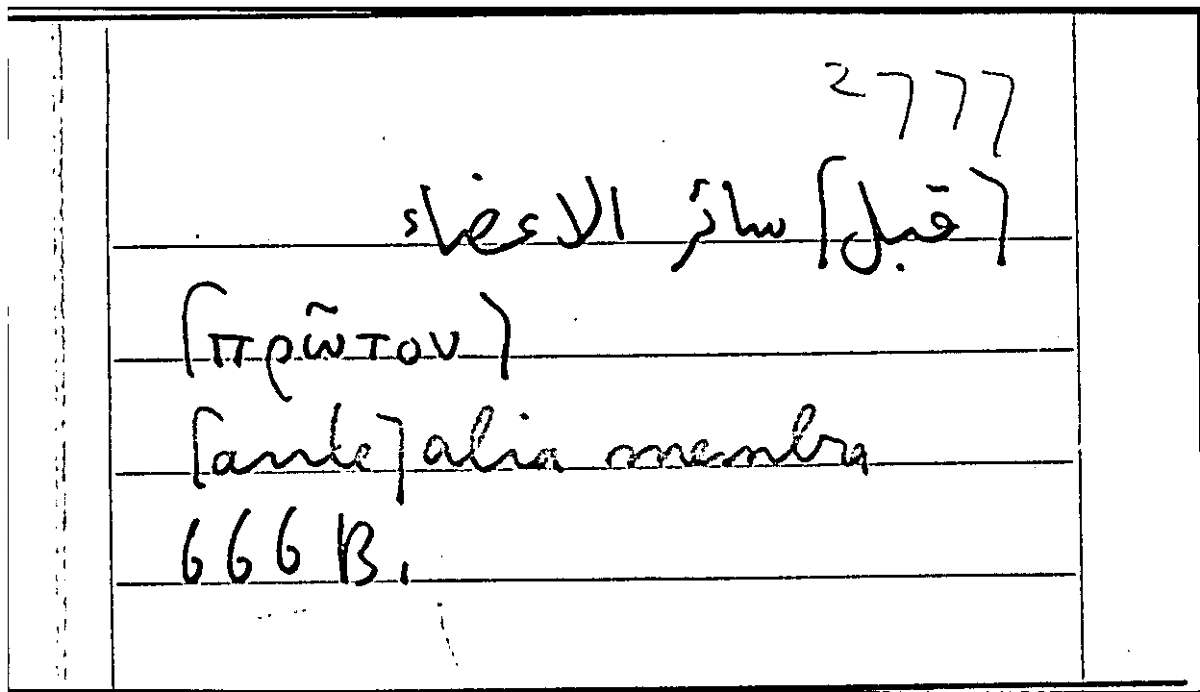 2777
[قبل] سائر الاعضاء
[πρῶτον]
[ante] alia membra
666 B.